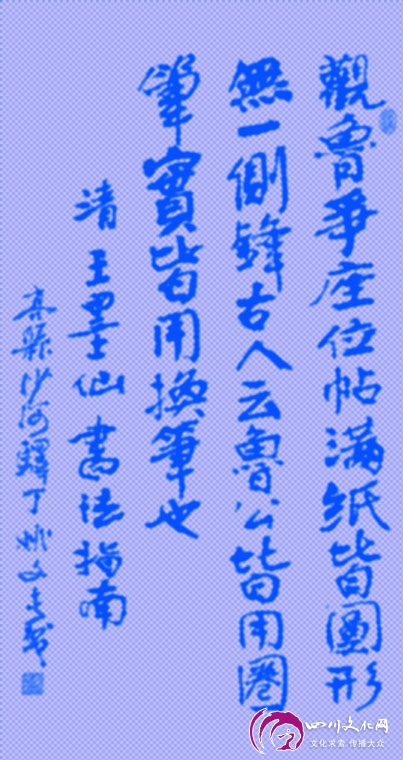 觀魯爭座位帖滿紙皆圓形
無一側鋒古人云魯公皆用圈
筆實皆用換筆也
清王墨仙書法指南
高縣沙河驛丁
四川文化网
文化求索 传播大众